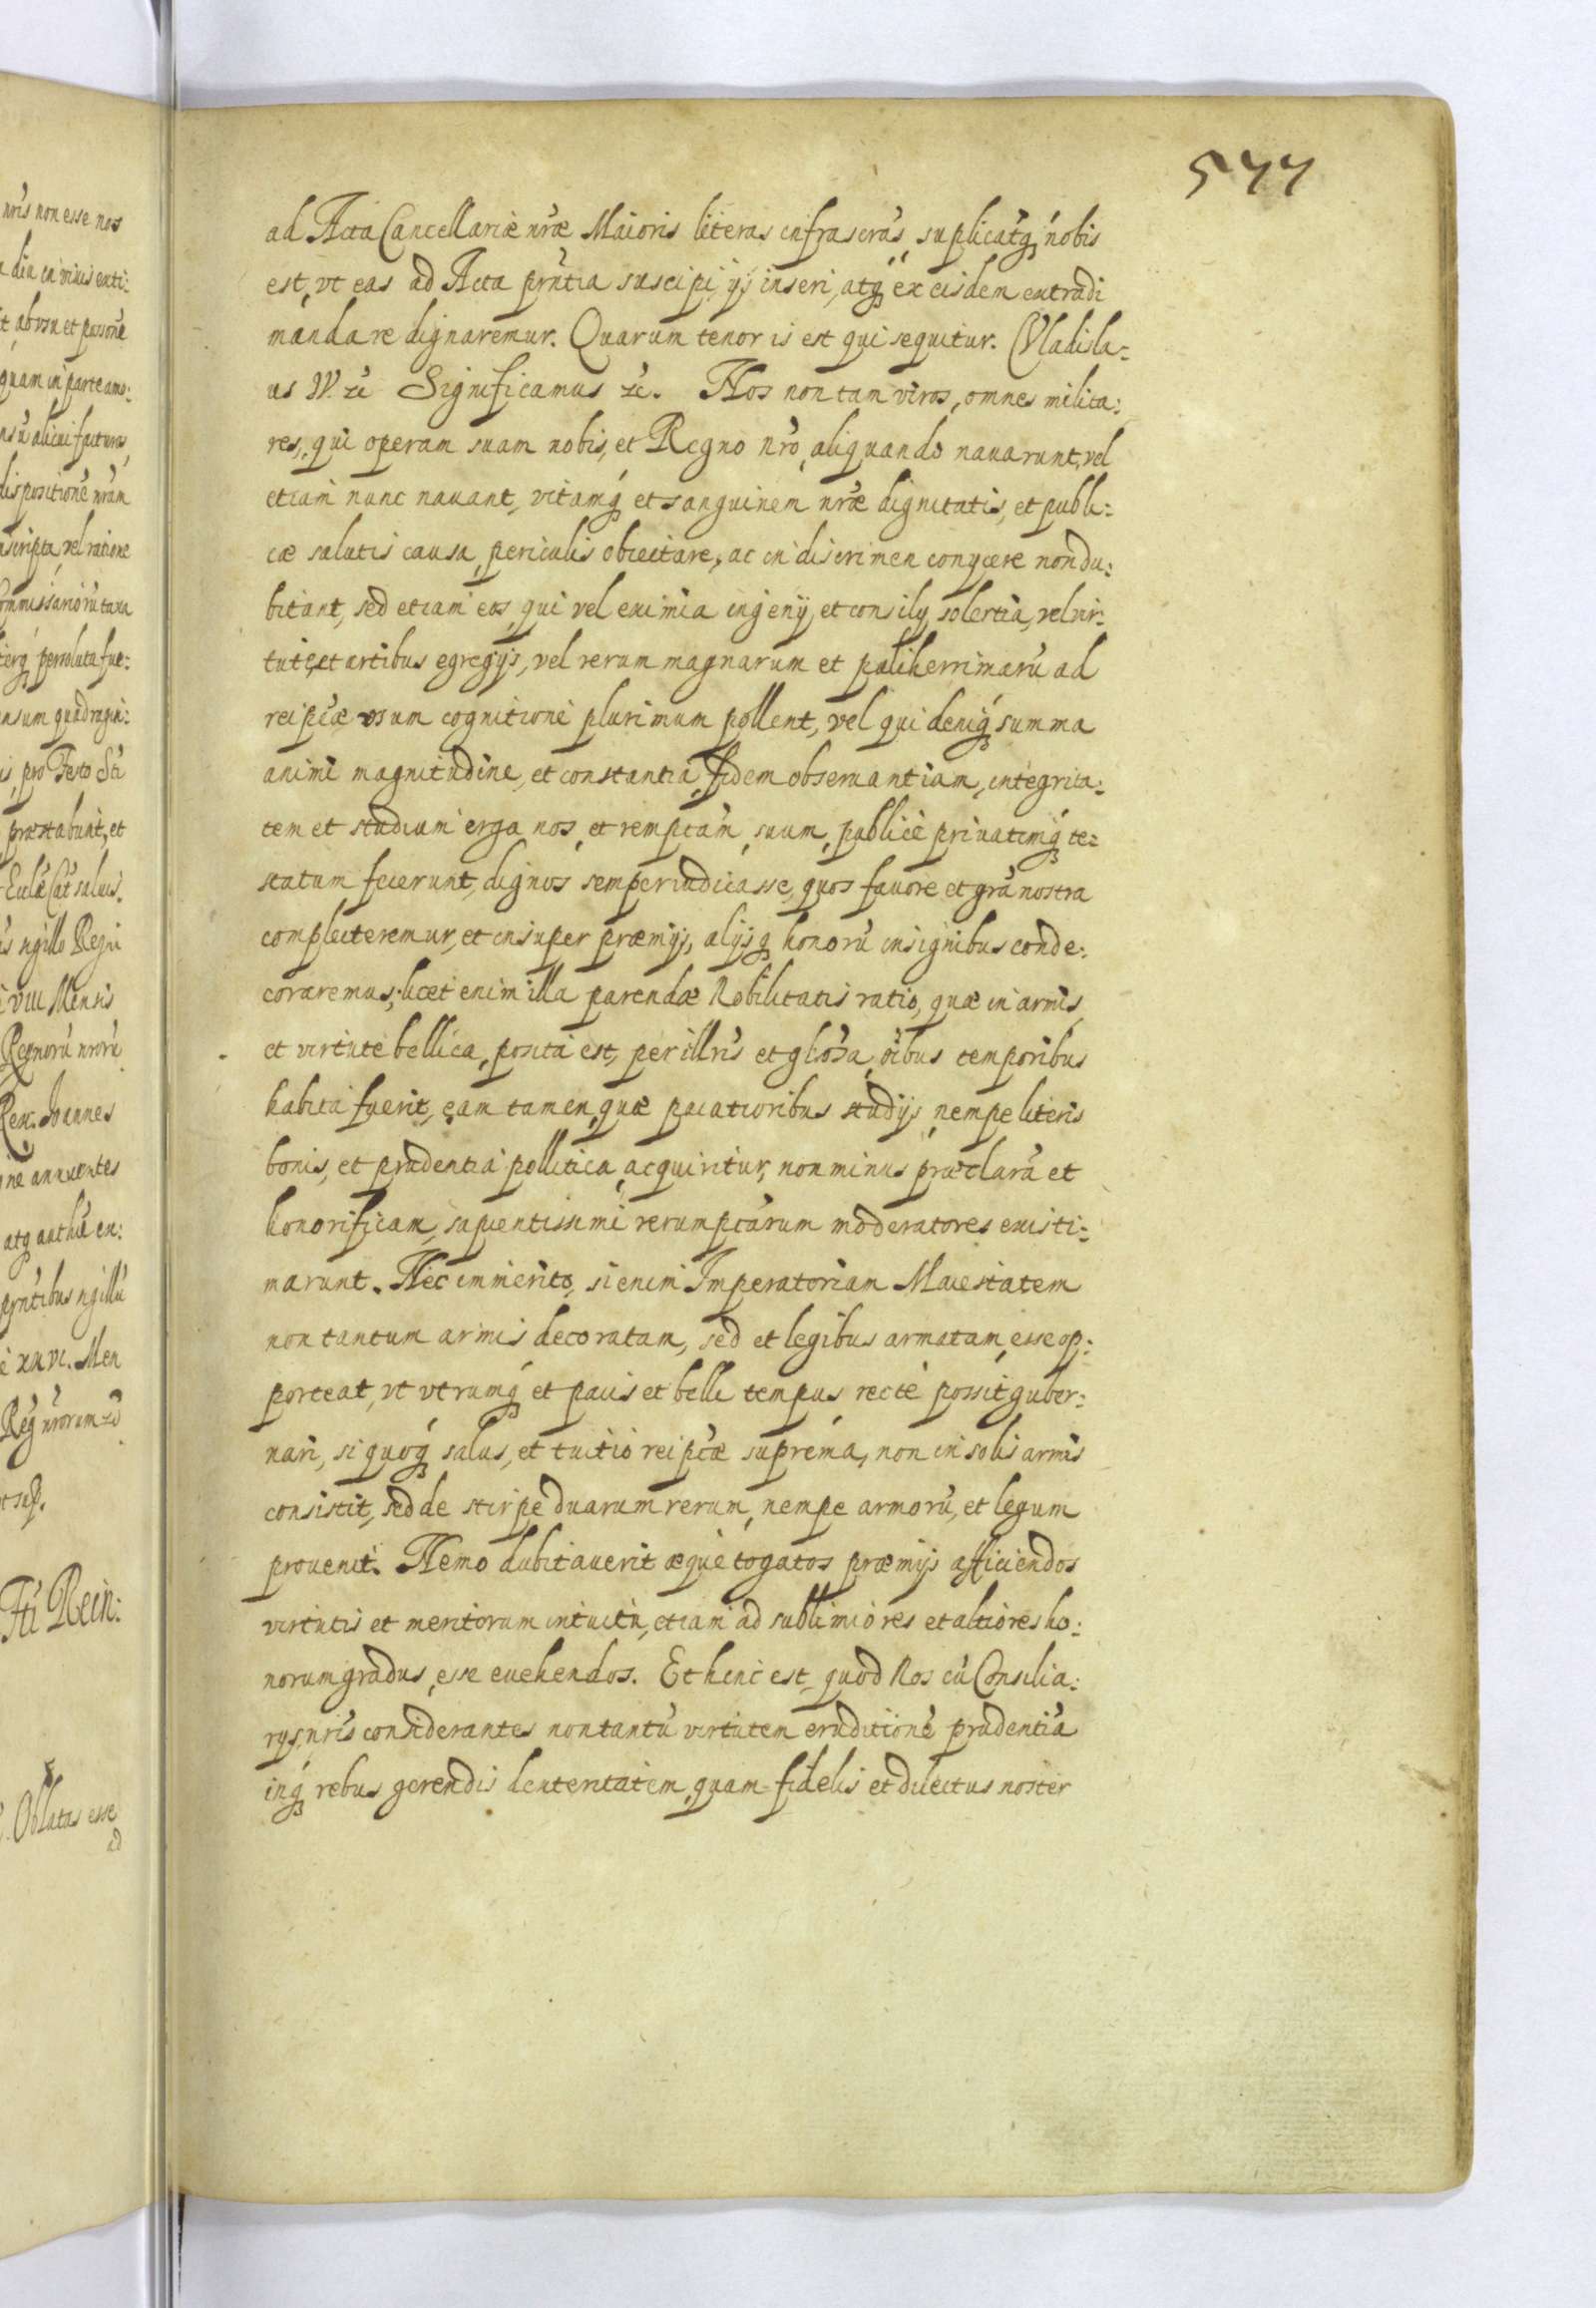 544
ad Acta Cancellariæ nr̃æ Maioris literas infrascr̃as, suplicat̃q́ nobis
est, vt eas ad Acta pr̃ntia suscipi, ijs inseri, atq́ ex eisdem extradi
mandare dignaremur. Quarum tenor is est qui sequitur. Vladisla-
us IV. &c̃ Significamus &c̃. Nos non tam viros, omnes milita:
res, qui operam suam nobis, et Regno nr̃o, aliquando nauarunt, vel
etiam nunc nauant, vitamq́ et sanguinem nr̃æ dignitatis, et publi:
cæ salutis causa, periculis obiectare, ac in discrimen conijcere non du:
bitant, sed etiam eos, qui vel eximia ingenij, et consilij, solertia, vel vir:
tute, et artibus egregijs, vel rerum magnarum et pulcherrimarũ ad
reip̃cæ vsum cognitione plurimum pollent, vel qui deniq́ summa
animi magnitudine, et constantia, fidem obseruantiam, integrita:
tem et studium erga nos, et remp̃cam, suum, publicè priuatimq́ te:
statum fecerunt, dignos semper iudicasse, quos fauore et gr̃a nostra
complecteremur, et insuper præmijs, alijsq́ honorũ insignibus conde:
coraremus; licet enim illa parendæ Nobilitatis ratio, quæ in armis,
et virtute bellica, posita est, perillr̃is et glõsa, õibus temporibus
habita fuerit, eam tamen, quæ pacatioribus studijs, nempe literis
bonis, et prudentia pollitica, acquiritur, non minus præclarã et
honorificam, sapientissimi rerump̃carum moderatores existi:
marunt. Nec immerito, si enim Imperatoriam Maiestatem
non tantum armis decoratam, sed et legibus armatam, esse op:
porteat, vt vtrumq́ et pacis et belli tempus rectè possit guber:
nari, si quoq́ salus, et tuitio reip̃cæ suprema, non in solis armis
consistit, sed de stirpe duarum rerum, nempe armorũ, et legum
prouenit. Nemo dubitauerit æquè togatos præmijs afficiendos
virtutis et meritorum intuitu, etiam ad sublimiores et altiores ho:
norum gradus, esse euehendos. Et hinc est, quod Nos cũ Consilia:
rijs nr̃is considerantes non tantũ virtutem eruditionẽ prudentiã
inq́ rebus gerendis dexteritatem, quam fidelis et dilectus noster